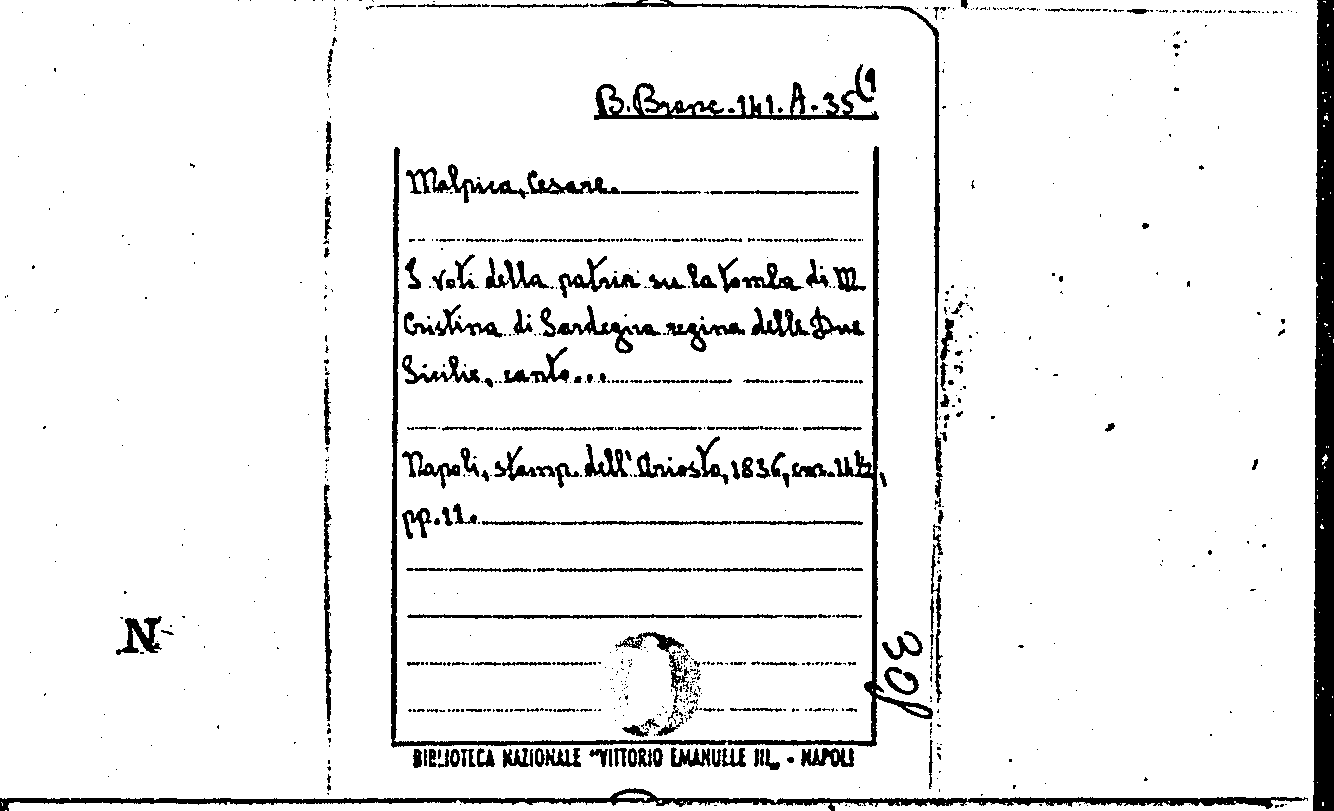 B. Branc. 141. A. 35(1
Malpica, Cesare.
I voti della patria su la tomba di M.
Cristina di Sardegna regina delle Due
Sicilie, canto...
Napoli, stamp. dell'Ariosto, 1836, cm.
pp. 11.
N
308
BIBLIOTECA NAZIONALE "VITTORIO EMANUELE III„ - NAPOLI